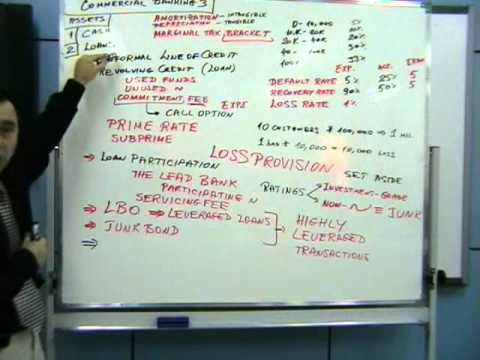 COMMERCIAL BANKING 3
ASSETS
1 CASH
2 LOANS
AMORTIZATION - INTANGIBLE
DEPRECIATION - TANGIBLE
MARGINAL TAX BRACKET
0 - 10,000 5%
10K - 20K 10%
20K - 40K 20%
40 - 100K 30%
INFORMAL LINE OF CREDIT
REVOLVING CREDIT (LOAN)
USED FUNDS
UNUSED "
COMMITMENT FEE
CALL OPTION
EXP.
DEFAULT RATE 5% 25% 5
RECOVERY RATE 90% 50% 5
LOSS RATE 1%
PRIME RATE
SUBPRIME
10 CUSTOMERS $ 100,000 ⇒ 1 MIL.
⇒ LOAN PARTICIPATION
THE LEAD BANK
PARTICIPATING "
SERVICING FEE
LOSS PROVISION
SET ASIDE
RATINGS
INVESTMENT-GRADE
NON- ~ ≡ JUNK
⇒ LBO ⇒ LEVERAGED LOANS
⇒ JUNK BOND
⇒
HIGHLY
LEVERAGED
TRANSACTIONS